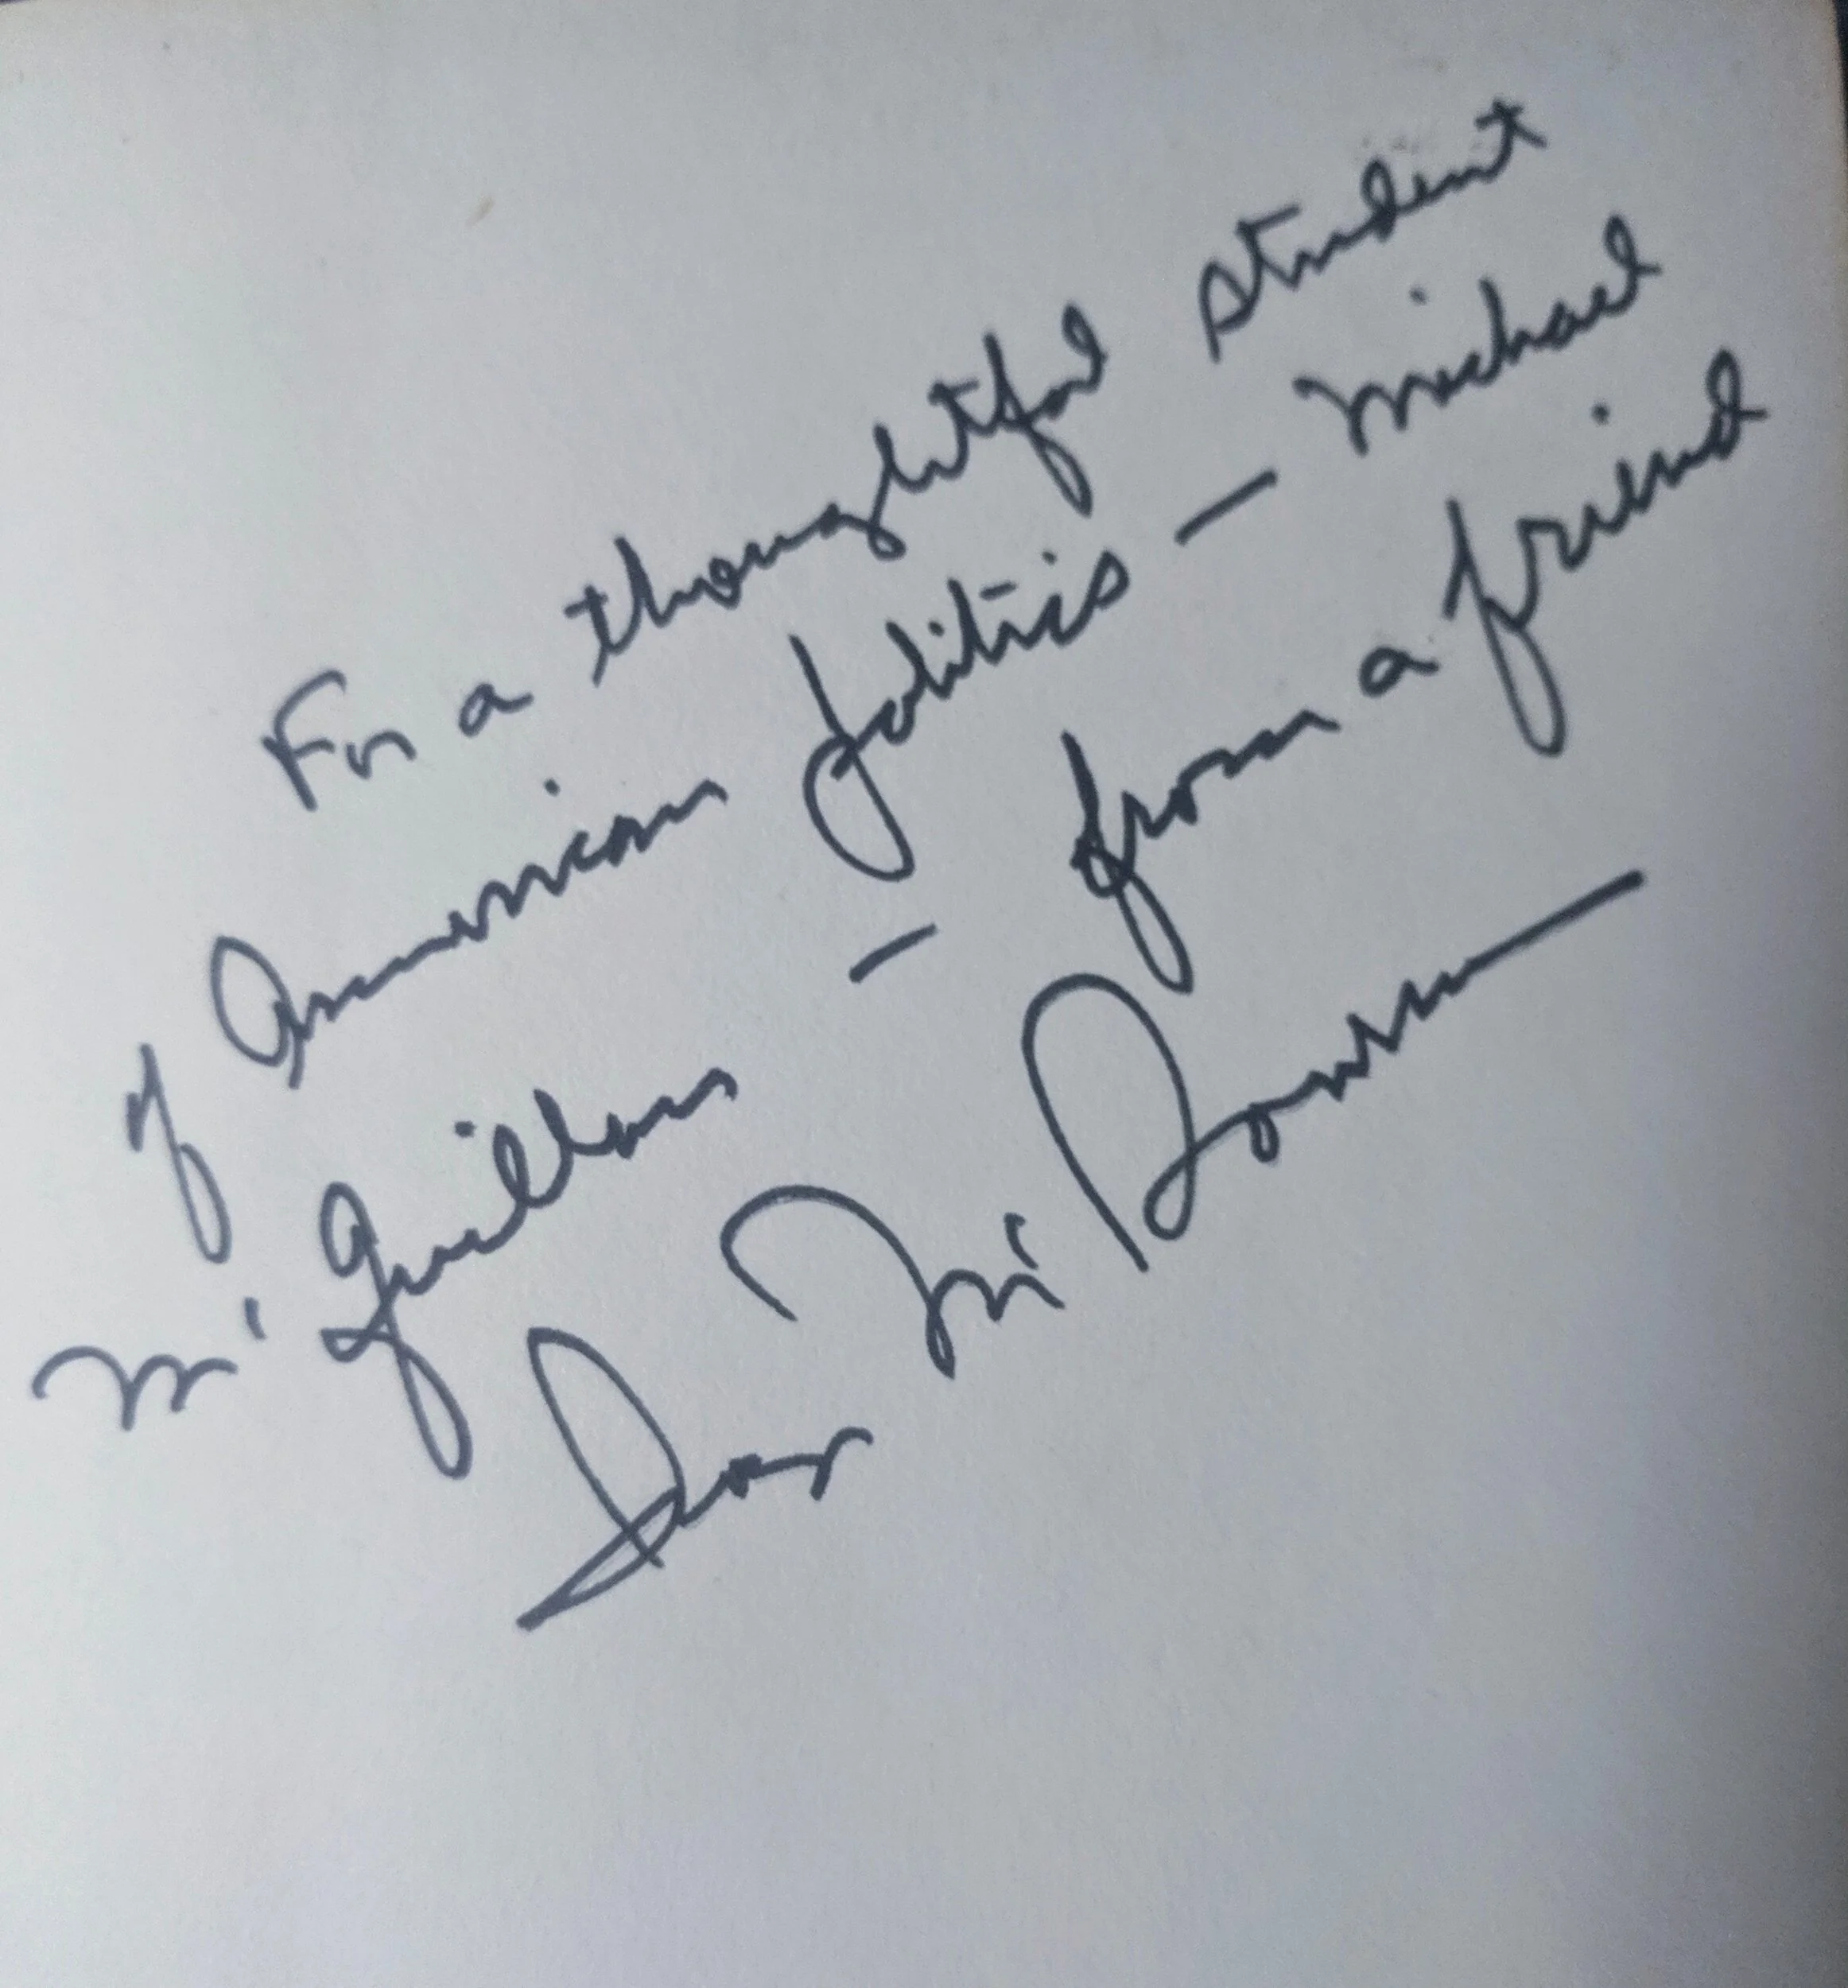 For a thoughtful student
of American politics — Michael
McGuillan — from a friend